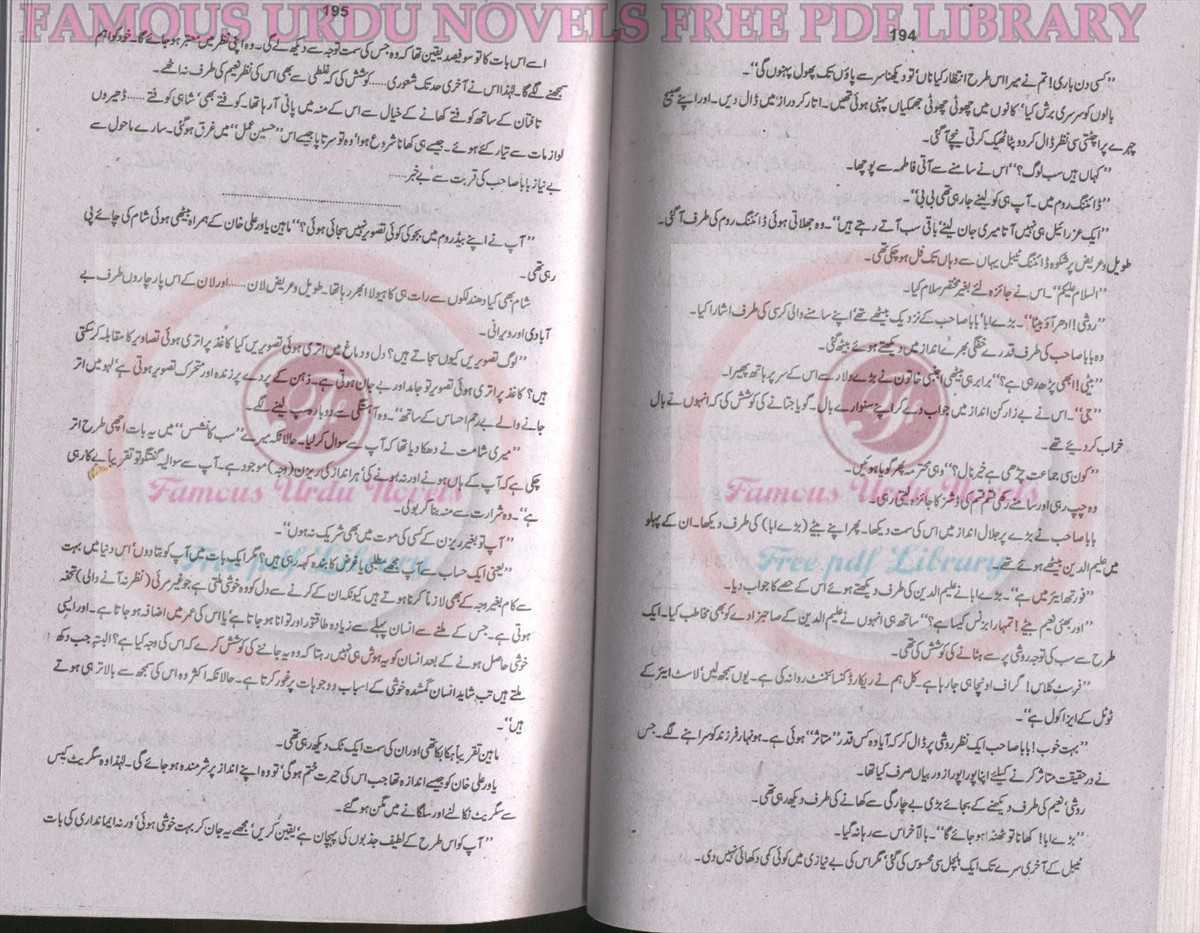 FAMOUS URDU NOVELS FREE PDF LIBRARY
194
“کسی دن باری! تم نے میرا اس طرح انتظار کیا ناں’ تو دیکھنا سر سے پاؤں تک پھول پہنوں گی”۔
بالوں کو سرسری برش کیا’ کانوں میں چھوٹی چھوٹی جھمکیاں پہنی ہوئی تھیں۔ اتار کر دراز میں ڈال دیں۔ اور اپنے صبیح
چہرے پر اچٹتی سی نظر ڈال کر دوپٹا ٹھیک کرتی نیچے آ گئی۔
“کہاں ہیں سب لوگ؟” اس نے سامنے سے آتی فاطمہ سے پوچھا۔
“ڈائننگ روم میں۔ آپ ہی کو لینے جا رہی تھی بی بی”۔
“ایک عزرائیل ہی نہیں آتا میری جان لینے’ باقی سب آتے رہتے ہیں”۔ وہ جھلاتی ہوئی ڈائننگ روم کی طرف آ گئی۔
طویل و عریض پرشکوہ ڈائننگ ٹیبل یہاں سے وہاں تک فل ہو چکی تھی۔
“السلام علیکم”۔ اس نے جائزہ لئے بغیر مختصر سلام کیا۔
“روشی! ادھر آؤ بیٹا”۔ بڑے ابا’ بابا صاحب کے نزدیک بیٹھے تھے’ اپنے سامنے والی کرسی کی طرف اشارا کیا۔
وہ بابا صاحب کی طرف قدرے خفگی بھرے انداز میں دیکھتے ہوئے بیٹھ گئی۔
“بیٹی! ابھی پڑھ رہی ہے؟” برابر ہی بیٹھی اجنبی خاتون نے بڑے دلار سے اس کے سر پر ہاتھ پھیرا۔
“جی”۔ اس نے بے زار کن انداز میں جواب دے کر اپنے سنوارے بال۔ گویا جتانے کی کوشش کی کہ انہوں نے بال
خراب کر دیئے تھے۔
“کون سی جماعت چڑھی ہے خیر نال؟” وہی محترمہ پھر گویا ہوئیں۔
وہ چپ رہی اور سامنے رکھی قسم قسم کی ڈشز کا جائزہ لیتی رہی۔
بابا صاحب نے بڑے پر جلال انداز میں اس کی سمت دیکھا۔ پھر اپنے بیٹے (بڑے ابا) کی طرف دیکھا۔ ان کے پہلو
میں علیم الدین بیٹھے ہوتے تھے۔
“فورتھ ایئر میں ہے”۔ بڑے ابا نے علیم الدین کی طرف دیکھتے ہوئے اس کے حصے کا جواب دیا۔
“اور بھئی نعیم بیٹے! تمہارا بزنس کیسا ہے؟” ساتھ ہی انہوں نے علیم الدین کے صاحبزادے کو بھی مخاطب کیا۔ ایک
طرح سے سب کی توجہ روشی پر سے ہٹانے کی کوشش کی تھی۔
“فرسٹ کلاس! گراف اونچا ہی جا رہا ہے۔ کل ہم نے ریکارڈ کنسائنمنٹ روانہ کی ہے۔ یوں سمجھ لیں’ لاسٹ ایئر کے
ٹوٹل کے ایزاکول ہے”۔
“بہت خوب! بابا صاحب ایک نظر روشی پر ڈال کر کہ آیا وہ کس قدر “متاثر” ہوئی ہے۔ ہونہار فرزند کو سراہنے لگے۔ جس
نے درحقیقت متاثر کرنے کیلئے اپنا پورا پورا زور بیاں صرف کیا تھا۔
روشی’ نعیم کی طرف دیکھنے کے بجائے بڑی بے چارگی سے کھانے کی طرف دیکھ رہی تھی۔
“بڑے ابا! کھانا تو ٹھنڈا ہو جائے گا”۔ بالآخر اس سے رہا نہ گیا۔
ٹیبل کے آخری سرے تک ایک ہلچل سی محسوس کی گئی’ مگر اس کی بے نیازی میں کوئی کمی دکھائی نہیں دی۔
Famous Urdu Novels
Free pdf Library
195
اسے اس بات کا تو سو فیصد یقین تھا کہ وہ جس کی سمت توجہ سے دیکھ لے گی۔ وہ اپنی نظر میں معتبر ہو جائے گا۔ خود کو اہم
سمجھنے لگے گا۔ لہٰذا اس نے آخری حد تک شعوری ..... کوشش کی کہ غلطی سے بھی اس کی نظر نعیم کی طرف نہ اٹھے۔
تافتان کے ساتھ کوفتے کھانے کے خیال سے اس کے منہ میں پانی آ رہا تھا۔ کوفتے بھی’ شاہی کوفتے ..... ڈھیروں
لوازمات سے تیار کئے ہوئے۔ جیسے ہی کھانا شروع ہوا’ وہ تو سرتاپا جیسے اس “حسین عمل” میں غرق ہو گئی۔ سارے ماحول سے
بے نیاز بابا صاحب کی قربت سے بے خبر .....
“آپ نے اپنے بیڈروم میں بجو کی کوئی تصویر نہیں سجائی ہوئی؟” ماہین یاور علی خان کے ہمراہ بیٹھی ہوئی شام کی چائے پی
رہی تھی۔
شام بھی کیا دھندلکوں سے رات ہی کا ہیولا ابھر رہا تھا۔ طویل و عریض لان ..... اور لان کے اس پار چاروں طرف بے
آبادی اور ویرانی۔
“لوگ تصویریں کیوں سجاتے ہیں؟ دل و دماغ میں اتری ہوئی تصویریں کیا کاغذ پر اتری ہوئی تصاویر کا مقابلہ کر سکتی
ہیں؟ کاغذ پر اتری ہوئی تصویر تو جامد اور بے جان ہوتی ہے۔ ذہن کے پردے پر زندہ اور متحرک تصویر ہوتی ہے’ لہو میں اتر
جانے والے بے رحم احساس کے ساتھ”۔ وہ آہستگی سے دوبارہ سپ لینے لگے۔
“میری شامت نے دھکا دیا تھا کہ آپ سے سوال کر لیا۔ حالانکہ میرے “سب کانشس” میں یہ بات اچھی طرح اتر
چکی ہے کہ آپ کے ہاں ہونے اور نہ ہونے کی’ ہر انداز کی ریزن (وجہ) موجود ہے۔ آپ سے سوالیہ گفتگو تو تقریباً بے کار ہی
ہے”۔ وہ شرارت سے منہ بنا کر بولی۔
“آپ تو بغیر ریزن کے کسی کی موت میں بھی شریک نہ ہوں”۔
“یعنی ایک حساب سے آپ مجھے مطلبی یا غرض کا بندہ کہہ رہی ہیں؟ مگر ایک بات میں آپ کو بتا دوں’ اس دنیا میں بہت
سے کام بغیر وجہ کے بھی لازماً کرنا ہوتے ہیں کیونکہ ان کے کرنے سے دل کو وہ خوشی ملتی ہے جو غیر مرئی (نظر نہ آنے والی) تحفہ
ہوتی ہے۔ جس کے ملنے سے انسان پہلے سے زیادہ طاقتور اور توانا ہو جاتا ہے’ یا اس کی عمر میں اضافہ ہو جاتا ہے۔ اور ایسی
خوشی حاصل ہونے کے بعد انسان کو یہ ہوش ہی نہیں رہتا کہ وہ یہ جاننے کی کوشش کرے کہ اس کی وجہ کیا ہے؟ البتہ جب دکھ
ملتے ہیں تب شاید انسان گمشدہ خوشی کے اسباب و وجوہات پر غور کرتا ہے۔ حالانکہ اکثر وہ اس کی سمجھ سے بالاتر ہی ہوتے
ہیں”۔
ماہین تقریباً ہکا بکا تھی اور ان کی سمت ایک ٹک دیکھ رہی تھی۔
یاور علی خان کو جیسے اندازہ تھا جب اس کی حیرت ختم ہو گی’ تو وہ اپنے انداز پر شرمندہ ہو جائے گی۔ لہٰذا وہ سگریٹ کیس
سے سگریٹ نکالنے اور سلگانے میں مگن ہو گئے۔
“آپ کو اس طرح کے لطیف جذبوں کی پہچان ہے’ یقین کریں’ مجھے یہ جان کر بہت خوشی ہوئی’ ورنہ ایمانداری کی بات
Famous Urdu Novels
Free pdf Library